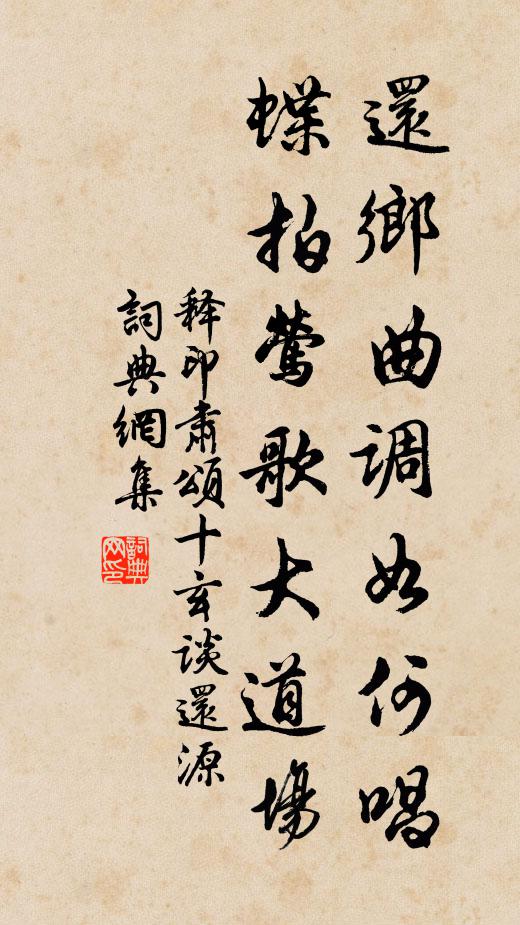 還鄉曲調如何唱
蝶拍鶯歌大道場
释印肅頌十玄談還源
詞典網集
詞典网印